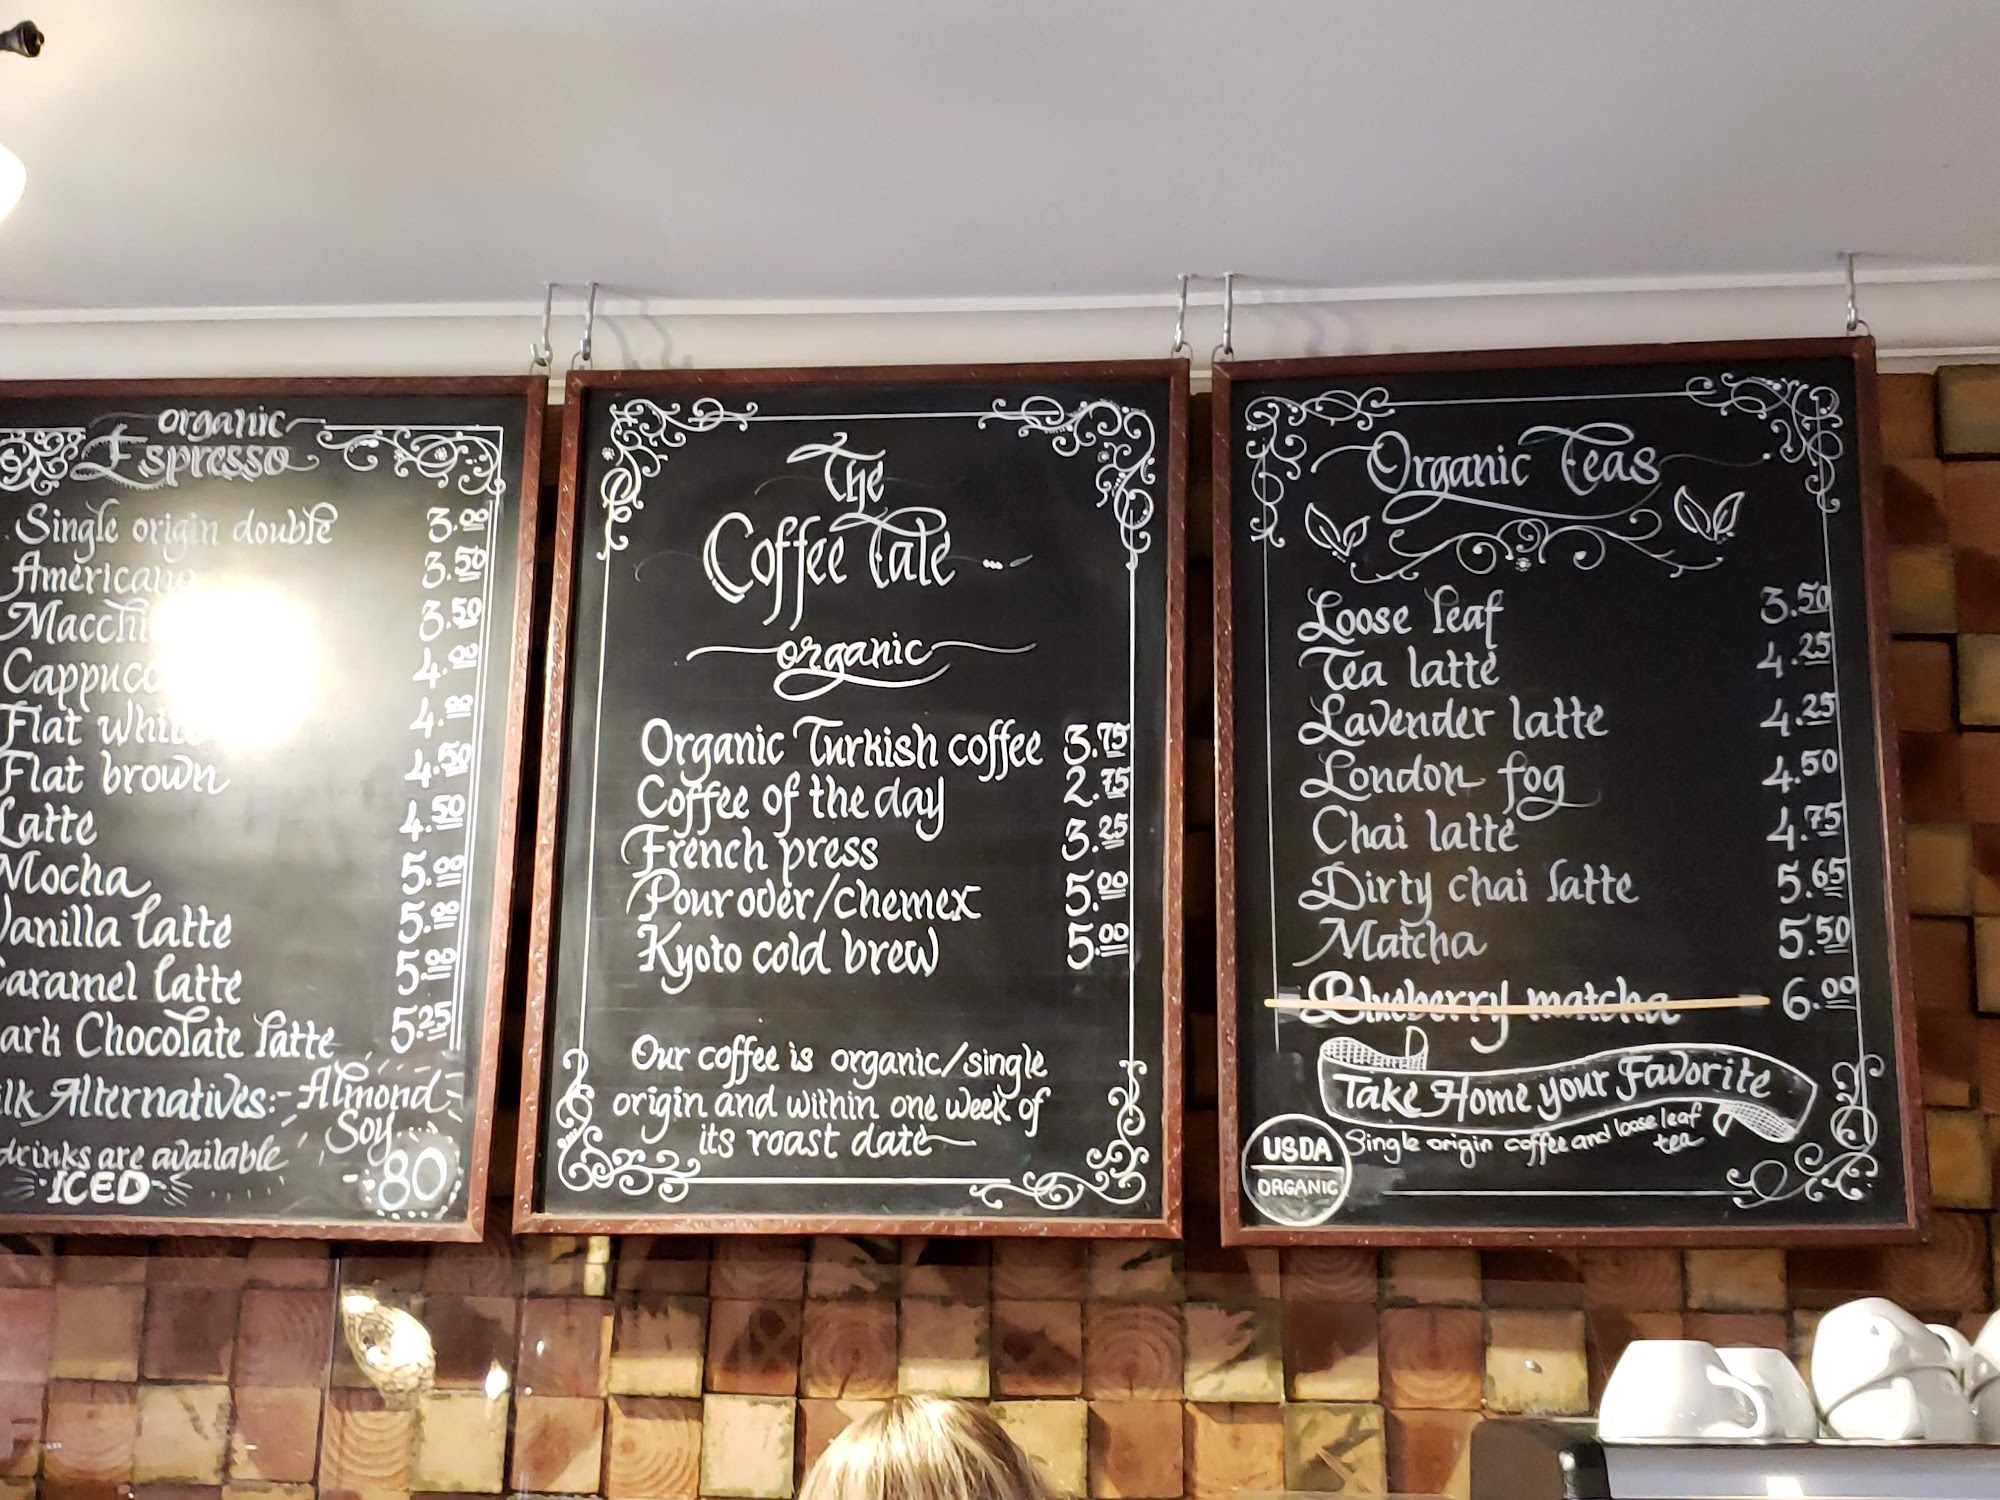 organic
Espresso
Single origin double 3.00
Americano 3.50
3.50
4.00
Flat 4.00
Flat brown 4.50
Latte 4.50
Mocha 5.00
Vanilla latte 5.00
Caramel latte 5.00
Dark Chocolate latte 5.25
Milk Alternatives:- Almond
Soy
80
drinks are available
ICED
The
Coffee Tale ...
organic
Organic Turkish coffee 3.75
Coffee of the day 2.75
French press 3.25
Pour over/chemex 5.00
Kyoto cold brew 5.00
Our coffee is organic/single
origin and within one week of
its roast date
Organic Teas
Loose leaf 3.50
Tea latte 4.25
Lavender latte 4.25
London fog 4.50
Chai latte 4.75
Dirty chai latte 5.65
Matcha 5.50
Blueberry matcha 6.00
Take Home your Favorite
Single origin coffee and loose leaf
tea
USDA
ORGANIC